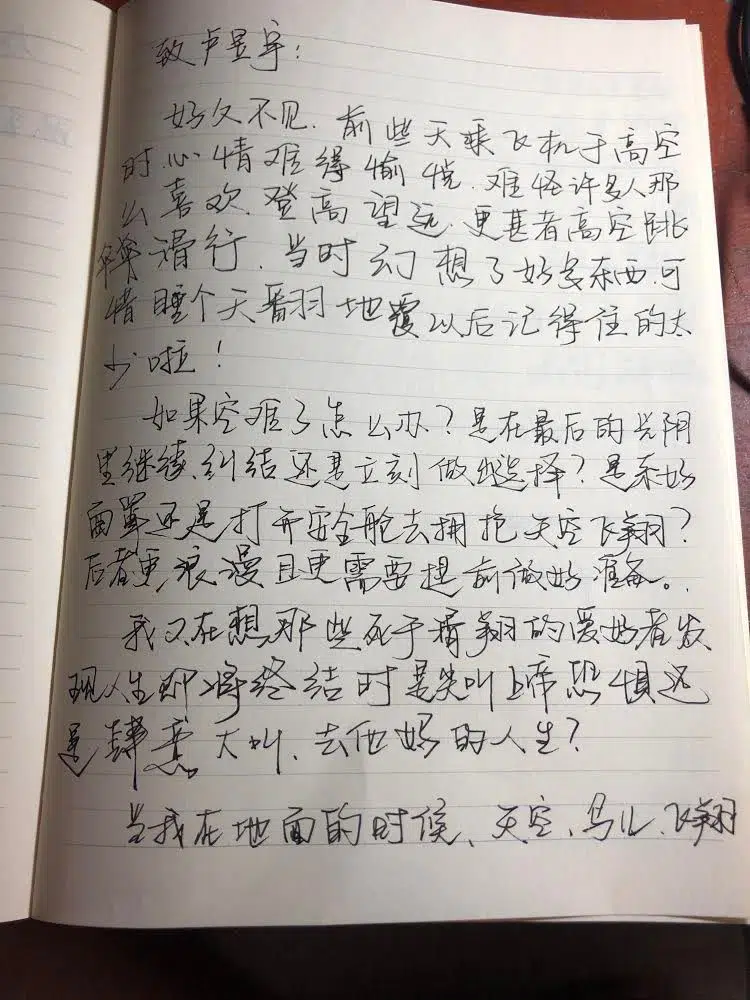 致卢昱宇:
好久不见.前些天乘飞机于高空
时心情难得愉悦.难怪许多人那
么喜欢.登高望远.更甚者高空跳
伞滑行.当时幻想了好多东西.可
惜睡个天翻地覆以后记得住的太
少啦!
如果空难了怎么办?是在最后的光阴
里继续纠结还是立刻做出选择?是系好
面罩还是打开安全舱去拥抱天空飞翔?
后者更浪漫且更需要提前做好准备。
我又在想那些死于滑翔的爱好者发
现人生即将终结时是尖叫上帝恐惧还
是肆意大叫、去他妈的人生?
当我在地面的时候、天空、鸟儿、飞翔